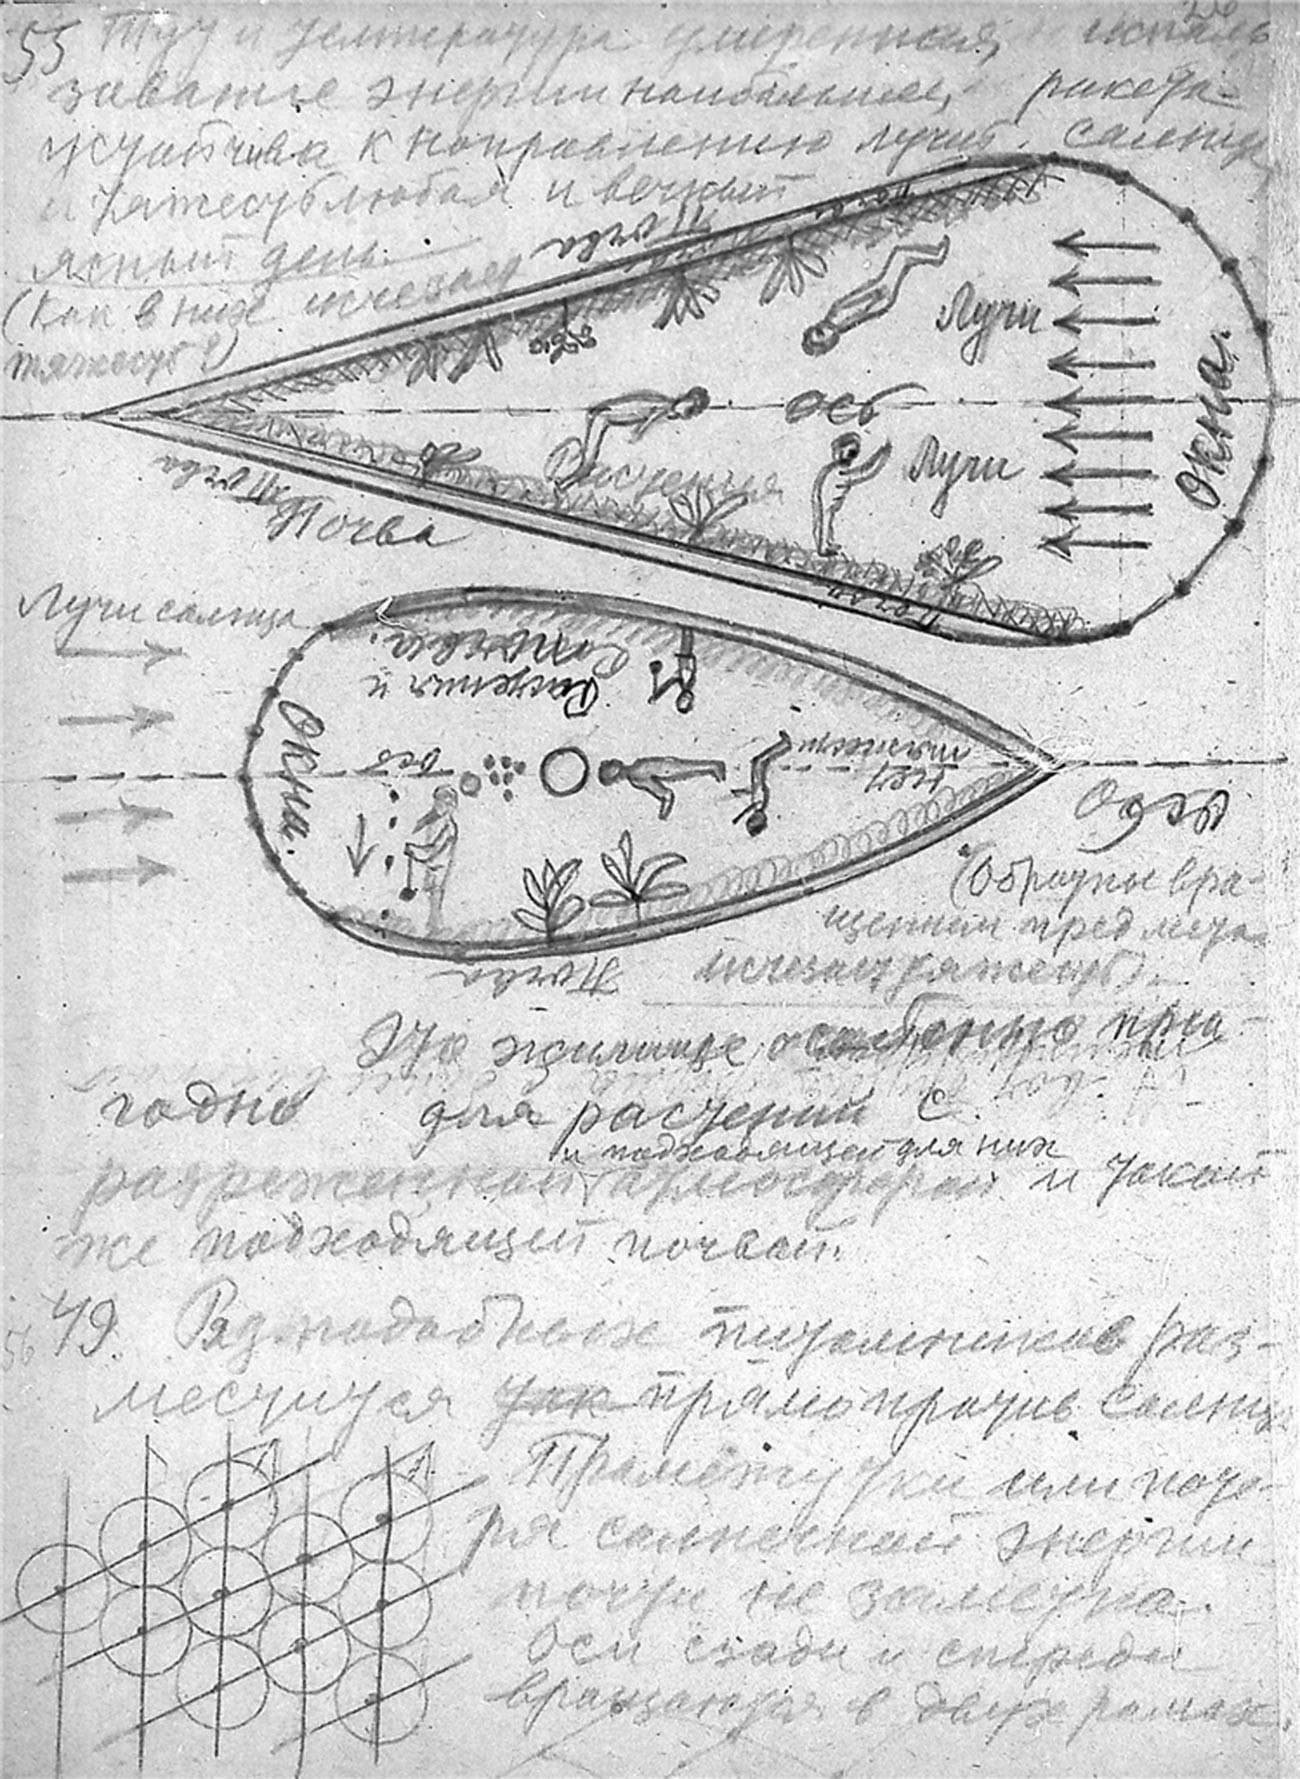 55 Тут и температура умеренная, и исполь
зование энергии наибольшее, ракета
устойчива к направлению лучей солнца
и тяжесть любая и вечный
ясный день.
(Как в ниже исчезает
тяжесть)
Почва
Почва
Лучи
Окна.
Ось
Лучи
Растения
Почва
Почва
Почва
Лучи солнца
Растения и
Почва.
Окна.
ось
нет
тяжести
Ось
(Обратным вра-
щением предмета
исчезает тяжесть).
Почва
Это жилище особенно при-
годно для растений с
и подходящей для них
разреженной атмосферой и такой
же подходящей почвой.
56 49. Ряд подобных питомников раз-
местится так прямо против солнца
Промежутки или поте-
ря солнечной энергии
почти не заметна.
Оси сзади и спереди
вращаются в двух рамах.